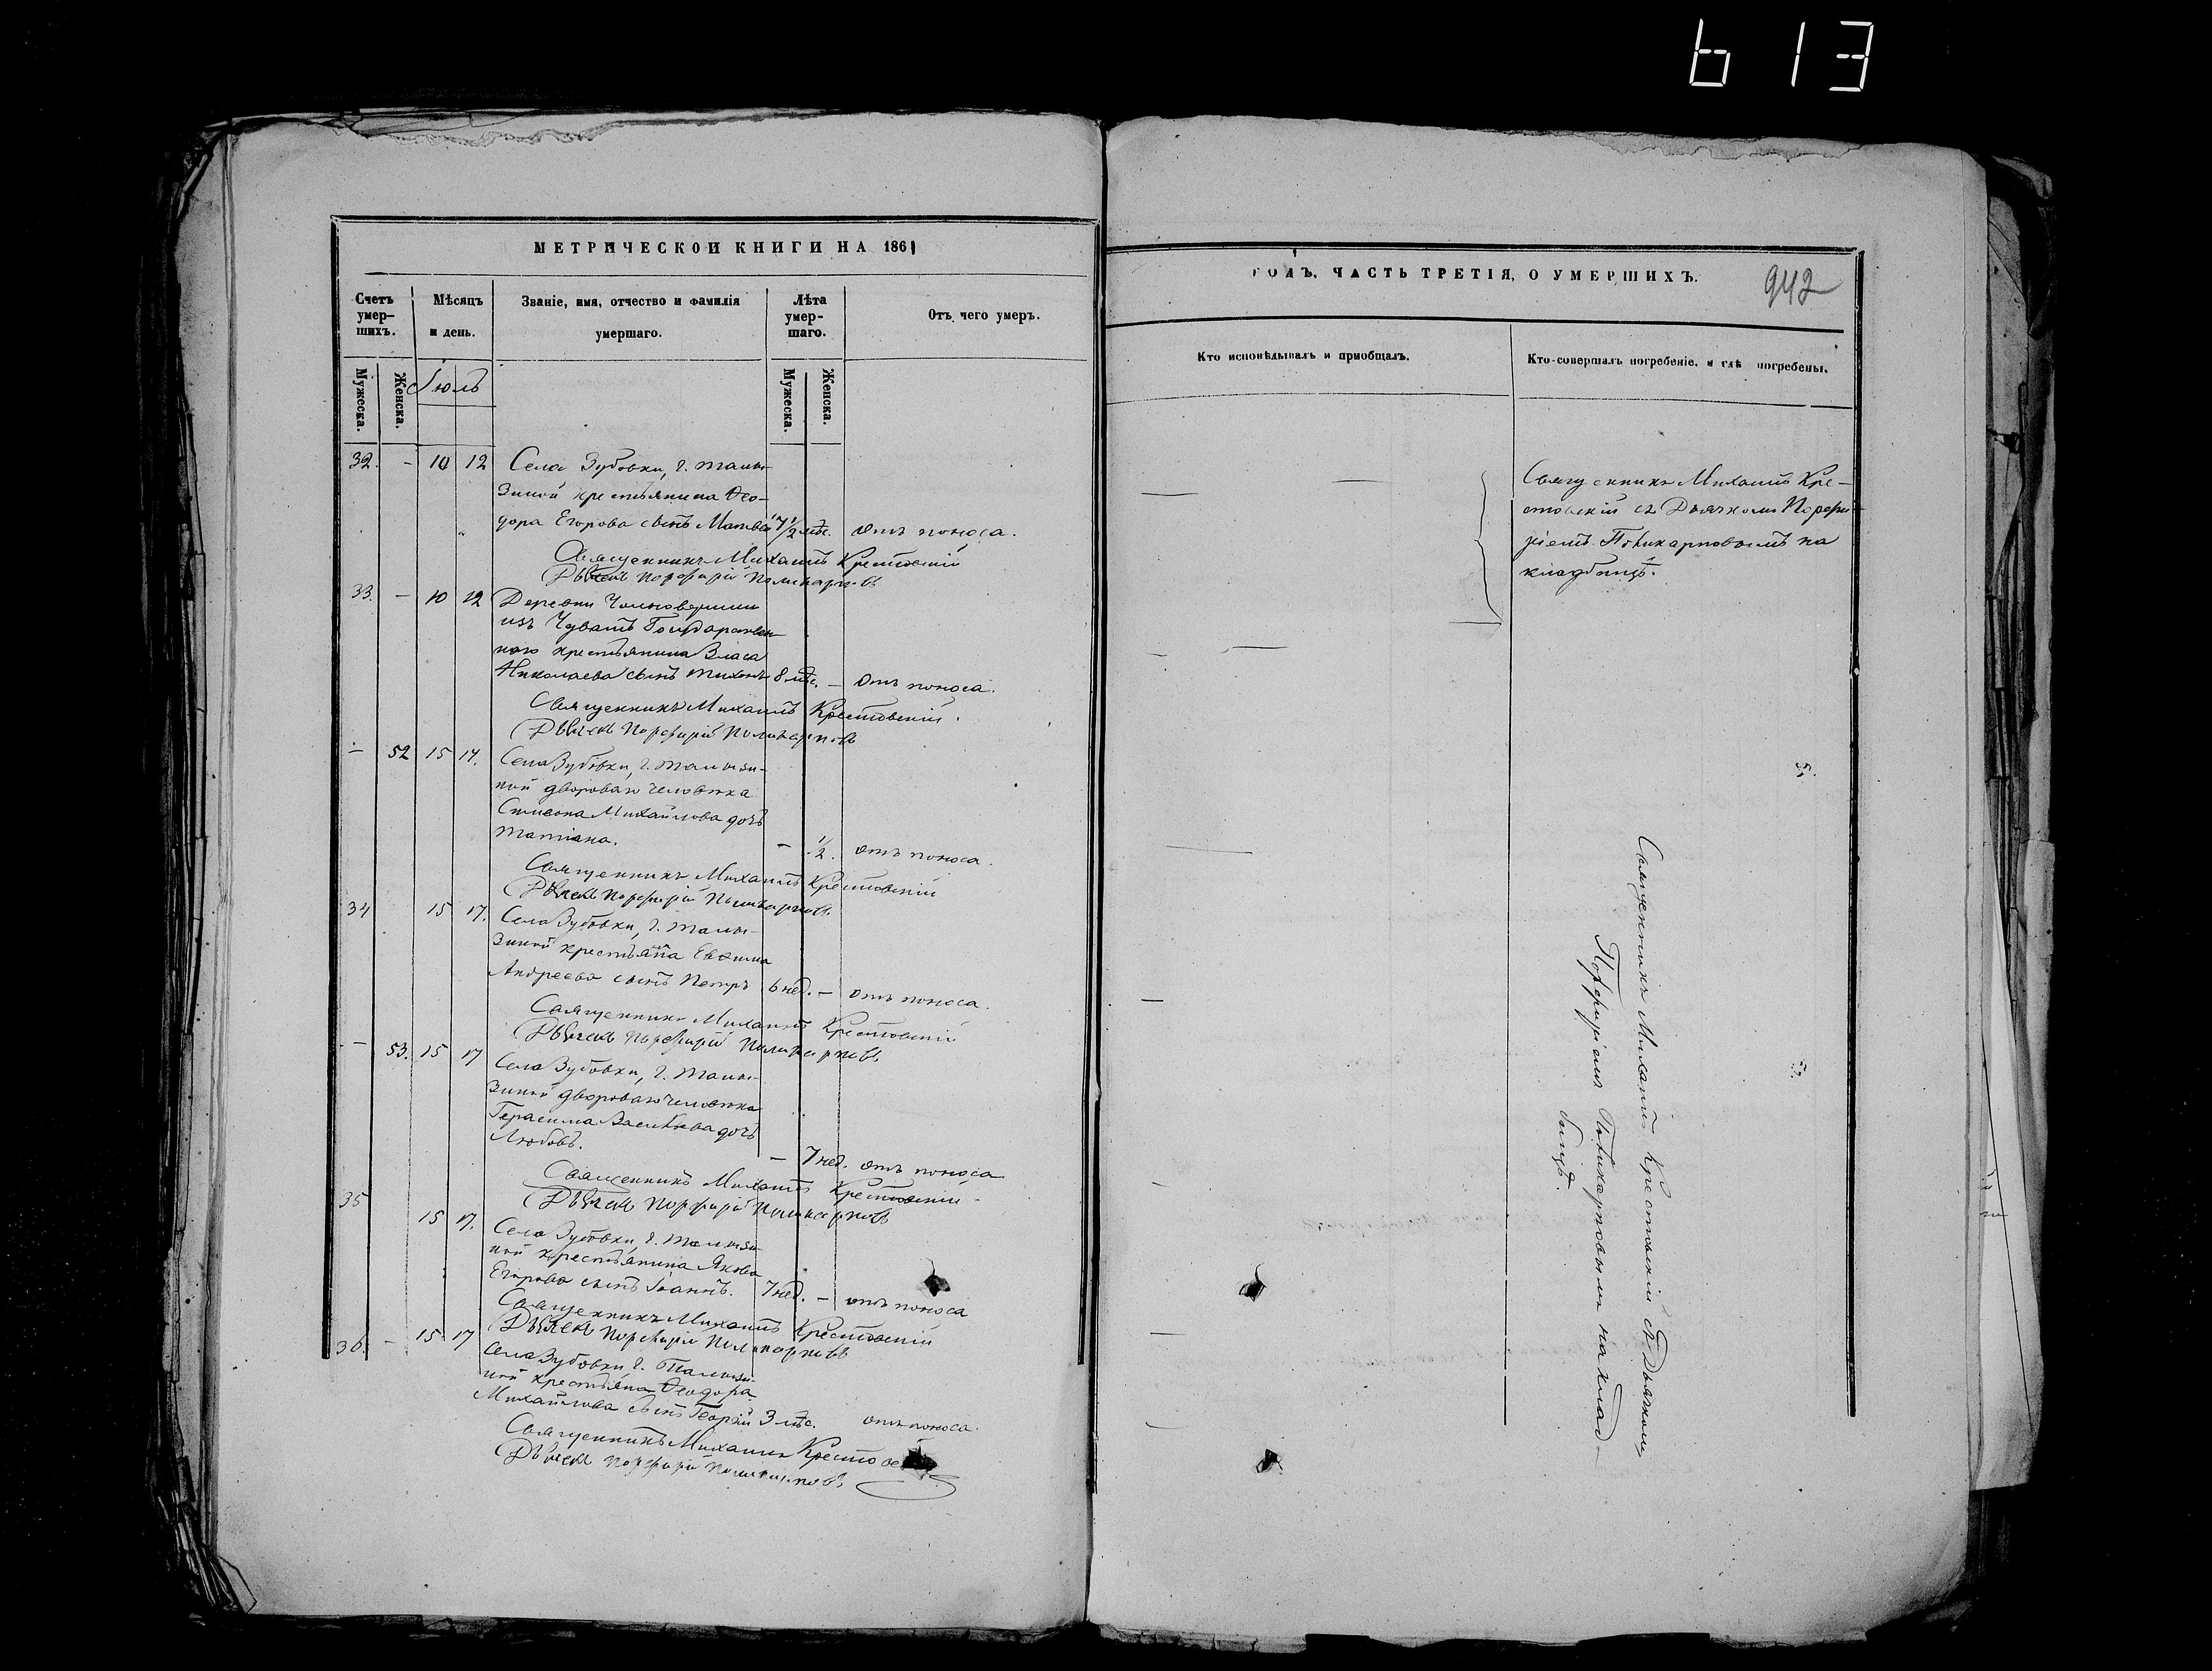 613
МЕТРИЧЕСКОЙ КНИГИ НА 1861
Счетъ умер-
шихъ.
Мѣсяцъ
и день.
Званіе, имя, отчество и фамилія
умершаго.
Лѣта
умер-
шаго.
Отъ чего умеръ.
Мужеска.
Женска.
Іюль
Мужеска.
Женска.
32. - 10 12 Села Зубовки, г. Талы-
зиной крестьянина Ѳео-
дора Егорова сынъ Матвей 7 1/2 мѣс. отъ поноса.
Священникъ Михаилъ Крестовскій
Дьячекъ Порфирій Поликарповъ
33. - 10 12 Деревни
изъ Чувашъ Государствен-
наго крестьянина Власа
Николаева сынъ Тихонъ 8 мѣс. - отъ поноса.
Священникъ Михаилъ Крестовскій.
Дьячекъ Порфирій Поликарповъ
- 52 15 17. Села Зубовки, г. Талызи-
ной двороваго человѣка
Симеона Михайлова дочь
Татіана. - 1/2. отъ поноса.
Священникъ Михаилъ Крестовскій
Дьячекъ Порфирій Поликарповъ
34 15 17. Села Зубовки, г. Талы-
зиной Евѳима
Андреева сынъ Петръ 6 нед. - отъ поноса.
Священникъ Михаилъ Крестовскій
Дьячекъ Порфирій Поликарповъ
- 53. 15 17 Села Зубовки, г. Талы-
зиной двороваго человѣка
Герасима Васильева дочь
Любовь. - 7 нед. отъ поноса
Священникъ Михаилъ Крестовскій
Дьячекъ Порфирій Поликарповъ
35 15 17. Села Зубовки, г. Талызи-
ной крестьянина Якова
Егорова сынъ Іоаннъ. 7 нед. - отъ поноса
Священникъ Михаилъ Крестовскій
Дьячекъ Порфирій Поликарповъ
36. - 15 17 Села Зубовки г. Талызи-
ной Ѳеодора
Михайлова сынъ Георгій 3 мѣс. отъ поноса.
Священникъ Михаилъ
Дьячекъ Порфирій Поликарповъ
ГОДЪ, ЧАСТЬ ТРЕТІЯ, О УМЕРШИХЪ.
942
Кто исповѣдывалъ и пріобщалъ.
Кто совершалъ погребеніе, и гдѣ погребены.
Священникъ Михаилъ Кре-
стовскій съ Дьячкомъ Порфи-
ріемъ Поликарповымъ на
кладбищѣ.
Священникъ Михаилъ Крестовскій съ Дьячкомъ
Порфиріемъ Поликарповымъ на клад-
бищѣ.